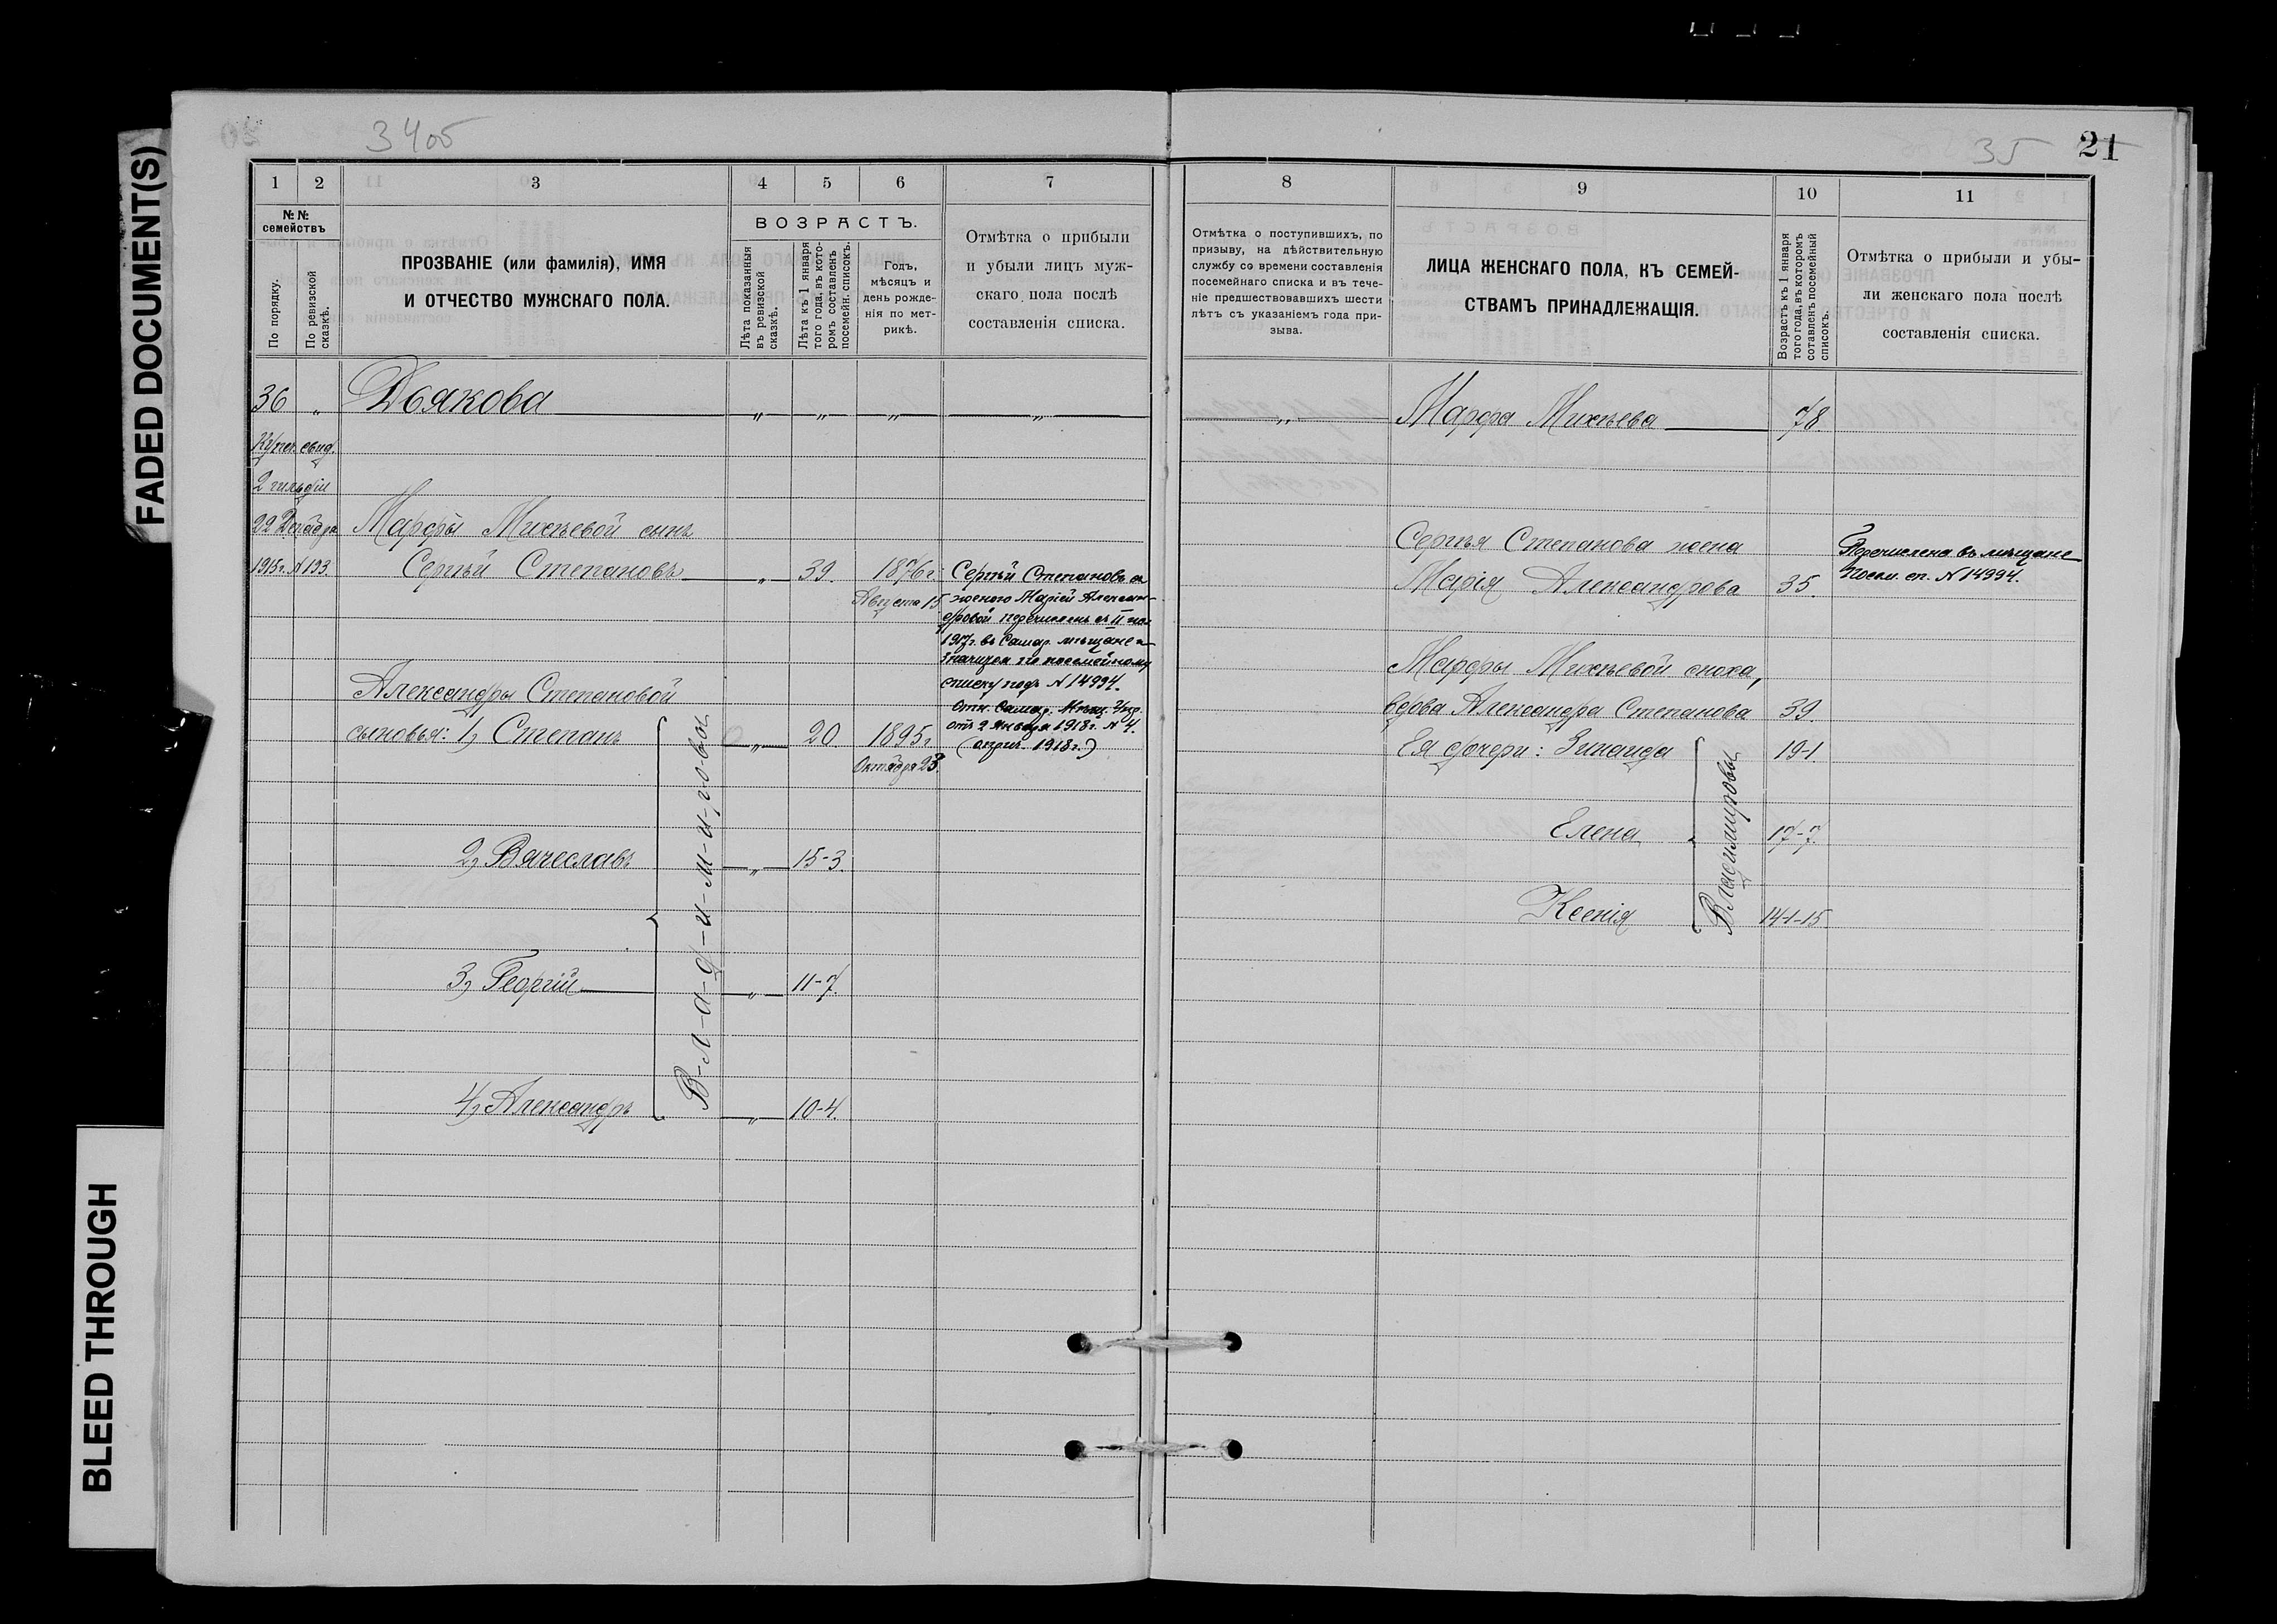 FADED DOCUMENT(S)
BLEED THROUGH
34об
35
21
1
2
3
4
5
6
7
№№ семействъ
По порядку.
По ревизской сказкѣ.
ПРОЗВАНІЕ (или фамилія), ИМЯ
И ОТЧЕСТВО МУЖСКАГО ПОЛА.
ВОЗРАСТЪ.
Лѣта показанныя въ ревизской сказкѣ.
Лѣта къ 1 января того года, въ которомъ составленъ посемейн. списокъ.
Годъ,
мѣсяцъ и
день рожде-
нія по мет-
рикѣ.
Отмѣтка о прибыли
и убыли лицъ муж-
скаго пола послѣ
составленія списка.
36 „ Дьякова „ „ „ „
Купеч. свид.
2 гильдіи
22 Декабря
1915 г. № 193.
Марфы Михѣевой сынъ
Сергѣй Степановъ „ 39. 1876 г.
Августа 15
Сергѣй Степановъ съ
женою Маріей Алексан-
дровой перечислены съ II по.
1917 г. въ Самар. мѣщане и
значится по посемейному
списку подъ № 14994.
Отн. Самар. Мѣщ. Упр.
отъ 9 Января 1918 г. № 4.
(опрч. 1918 г.)
Александры Степановой
сыновья: 1, Степанъ „ 20 1895 г.
Октября 28
2, Вячеславъ „ 15-3.
3, Георгій „ 11-7.
4, Александръ „ 10-4.
В-л-а-д-и-м-и-р-о-вы
8
9
10
11
Отмѣтка о поступившихъ, по
призыву, на дѣйствительную
службу со времени составленія
посемейнаго списка и въ тече-
ніе предшествовавшихъ шести
лѣтъ съ указаніемъ года при-
зыва.
ЛИЦА ЖЕНСКАГО ПОЛА, КЪ СЕМЕЙ-
СТВАМЪ ПРИНАДЛЕЖАЩІЯ.
Возрастъ къ 1 января
того года, въ которомъ
соствленъ посемейный
списокъ.
Отмѣтка о прибыли и убы-
ли женскаго пола послѣ
составленія списка.
„ Марфа Михѣева 78
Сергѣя Степанова жена
Марія Александрова 35.
Перечислена въ мѣщане
Посем. сп. № 14994.
Марфы Михѣевой сноха,
вдова Александра Степанова 39.
Ея дочери: Зинаида 19-1.
Елена 17-7.
Ксенія 14-1-15.
Владиміровы